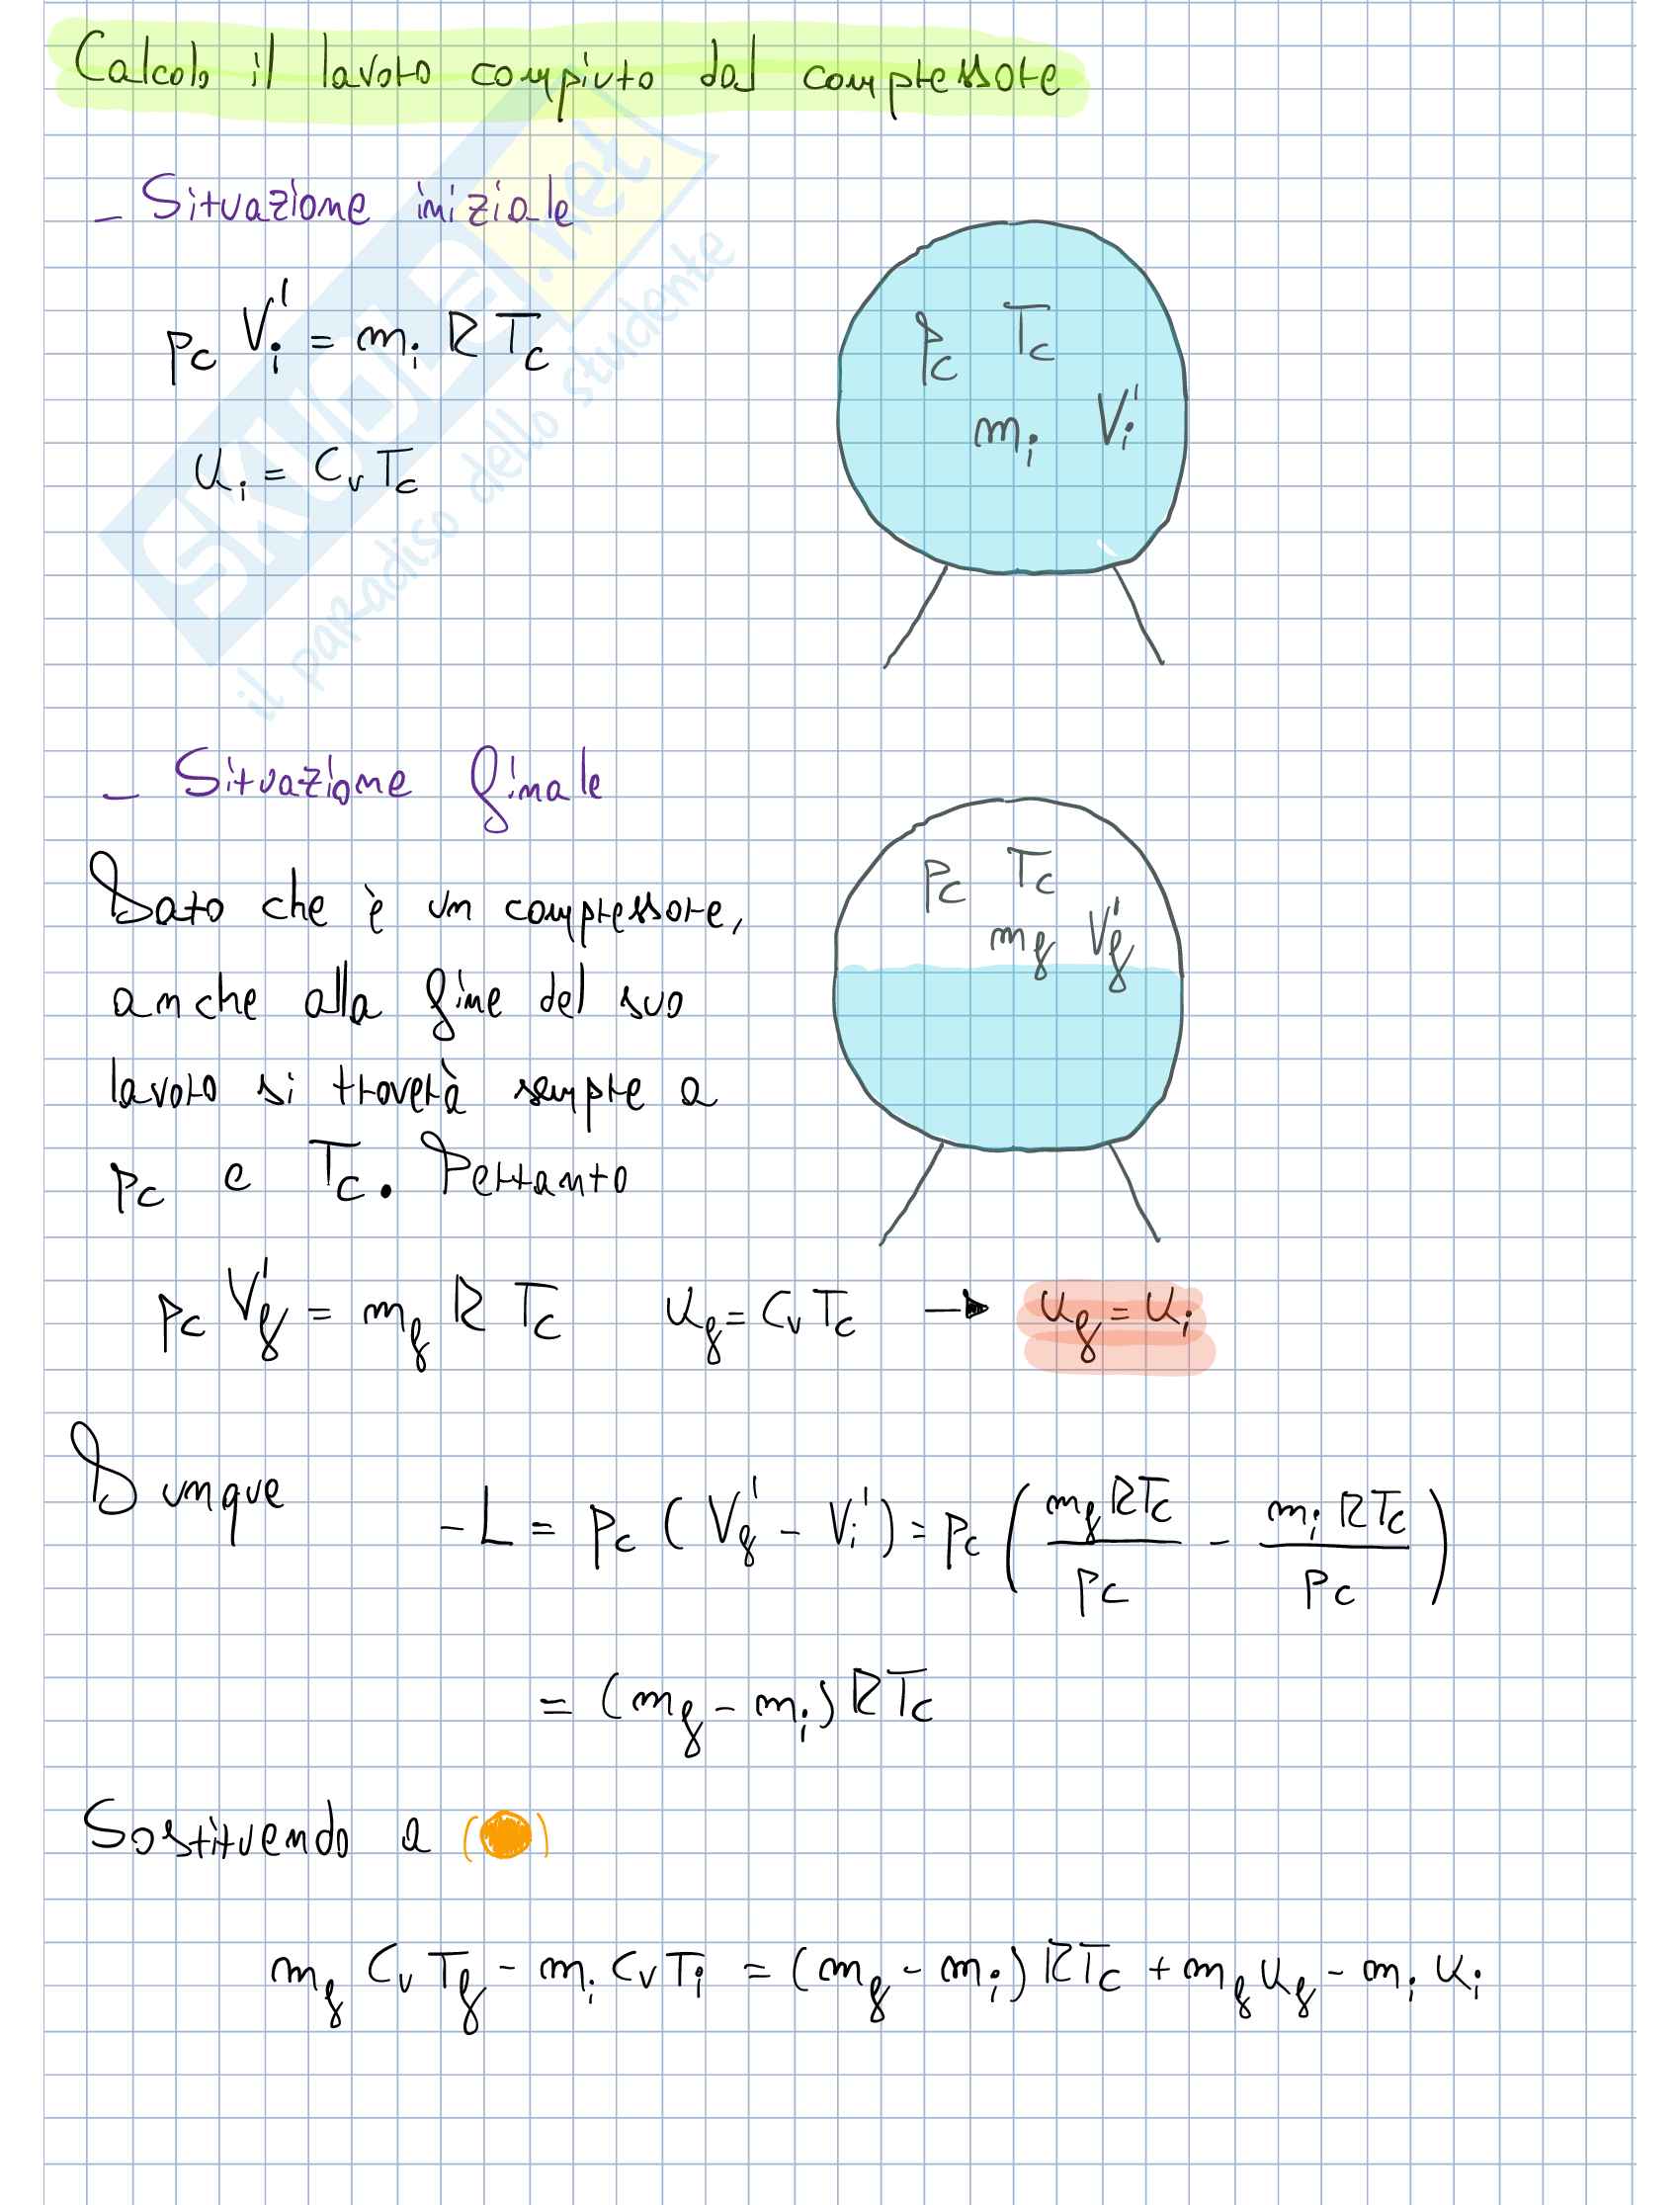 Calcolo il lavoro compiuto dal compressore
- Situazione iniziale
pc Vi' = mi R Tc
ui = Cv Tc
pc Tc
mi Vi'
- Situazione finale
Dato che è un compressore,
anche alla fine del suo
lavoro si troverà sempre a
pc e Tc. Pertanto
pc Tc
mf Vf'
pc Vf' = mf R Tc uf = Cv Tc → uf = ui
Dunque -L = pc (Vf' - Vi') = pc (mf RTc / pc - mi RTc / pc)
= (mf - mi) RTc
Sostituendo a (●)
mf Cv Tf - mi Cv Ti = (mf - mi) RTc + mf uf - mi ui
SKUOLA.net
il paradiso dello studente